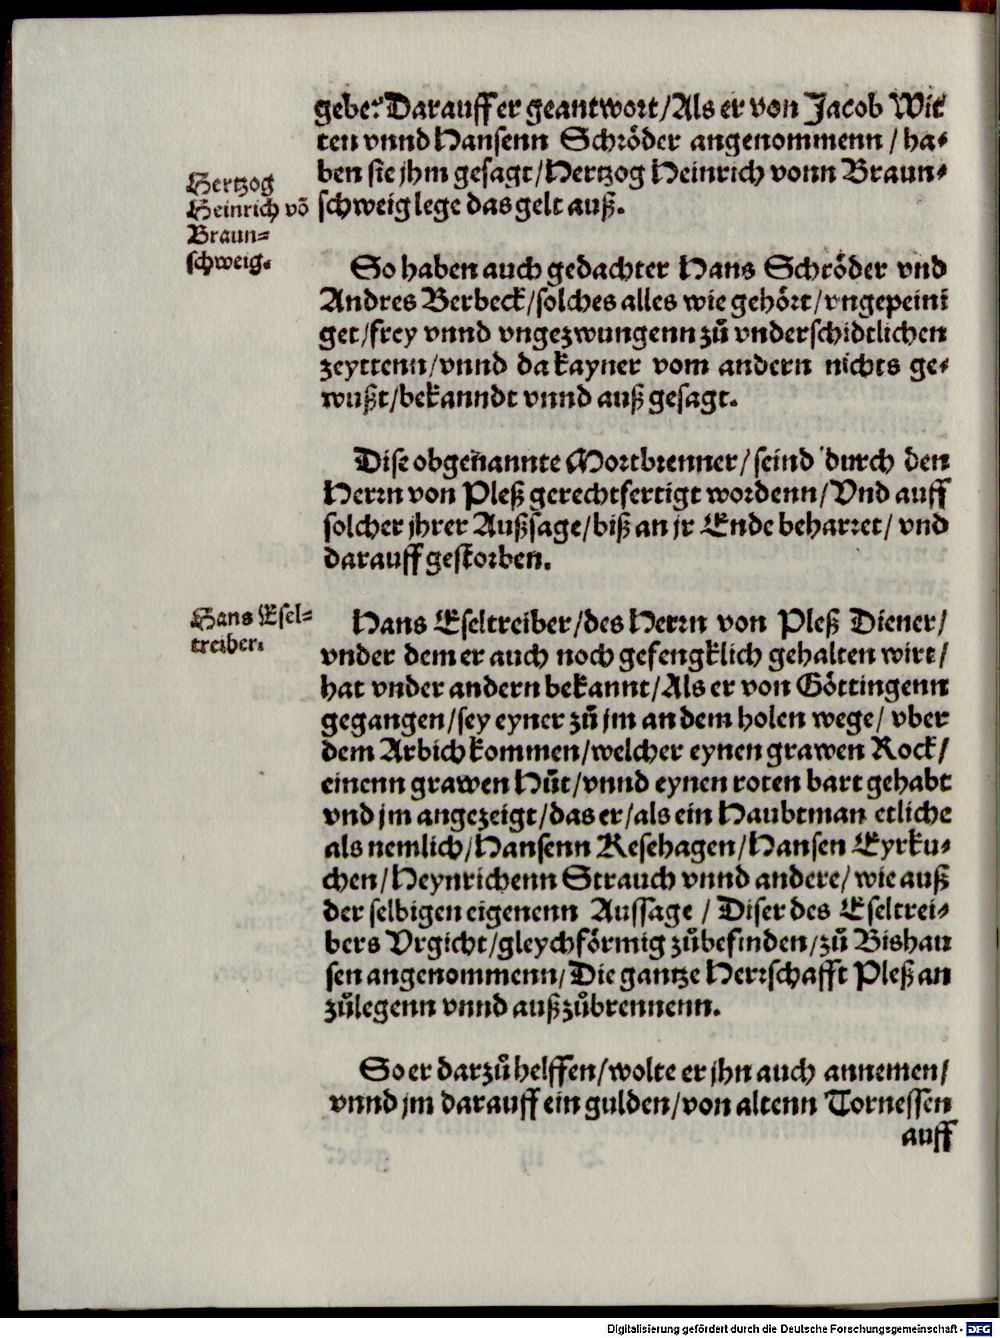 gebe? Darauff er geantwort/Als er von Jacob Wit
ten vnnd Hansenn Schröder angenommenn / ha-
ben sie jhm gesagt/Hertzog Heinrich vonn Braun-
schweig lege das gelt auß.
Hertzog
Heinrich võ
Braun-
schweig.
So haben auch gedachter Hans Schröder vnd
Andres Berbeck/solches alles wie gehört/vngepeini
get/frey vnnd vngezwungenn zů vnderschidtlichen
zeyttenn/vnnd da kayner vom andern nichts ge-
wußt/bekanndt vnnd auß gesagt.
Dise obgeñannte Mortbrenner/seind durch den
Herrn von Pleß gerechtfertigt wordenn/Vnd auff
solcher jhrer Außsage/biß an jr Ende beharret/ vnd
darauff gestorben.
Hans Esel-
treiber.
Hans Eseltreiber/des Herrn von Pleß Diener/
vnder dem er auch noch gefengklich gehalten wirt/
hat vnder andern bekannt/Als er von Göttingenn
gegangen/sey eyner zů jm an dem holen wege/ vber
dem Arbich kommen/welcher eynen grawen Rock/
einenn grawen Hůt/vnnd eynen roten bart gehabt
vnd jm angezeigt/das er/als ein Haubtman etliche
als nemlich/Hansenn Resehagen/Hansen Eyrku-
chen/Heynrichenn Strauch vnnd andere/wie auß
der selbigen eigenenn Aussage / Diser des Eseltrei-
bers Vrgicht/gleychförmig zůbefinden/zů Bishau
sen angenommenn/Die gantze Herrschafft Pleß an
zůlegenn vnnd außzůbrennenn.
So er darzů helffen/wolte er jhn auch annemen/
vnnd jm darauff ein gulden/von altenn Tornessen
auff
Digitalisierung gefördert durch die Deutsche Forschungsgemeinschaft - DFG